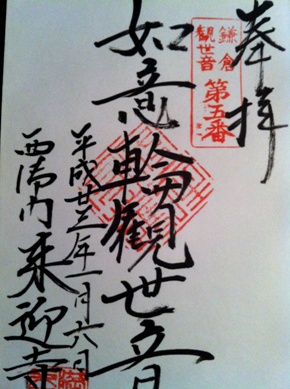 奉拝
鎌倉
観世音
第五番
如意輪観世音
平成廿三年一月六日
西御門来迎寺